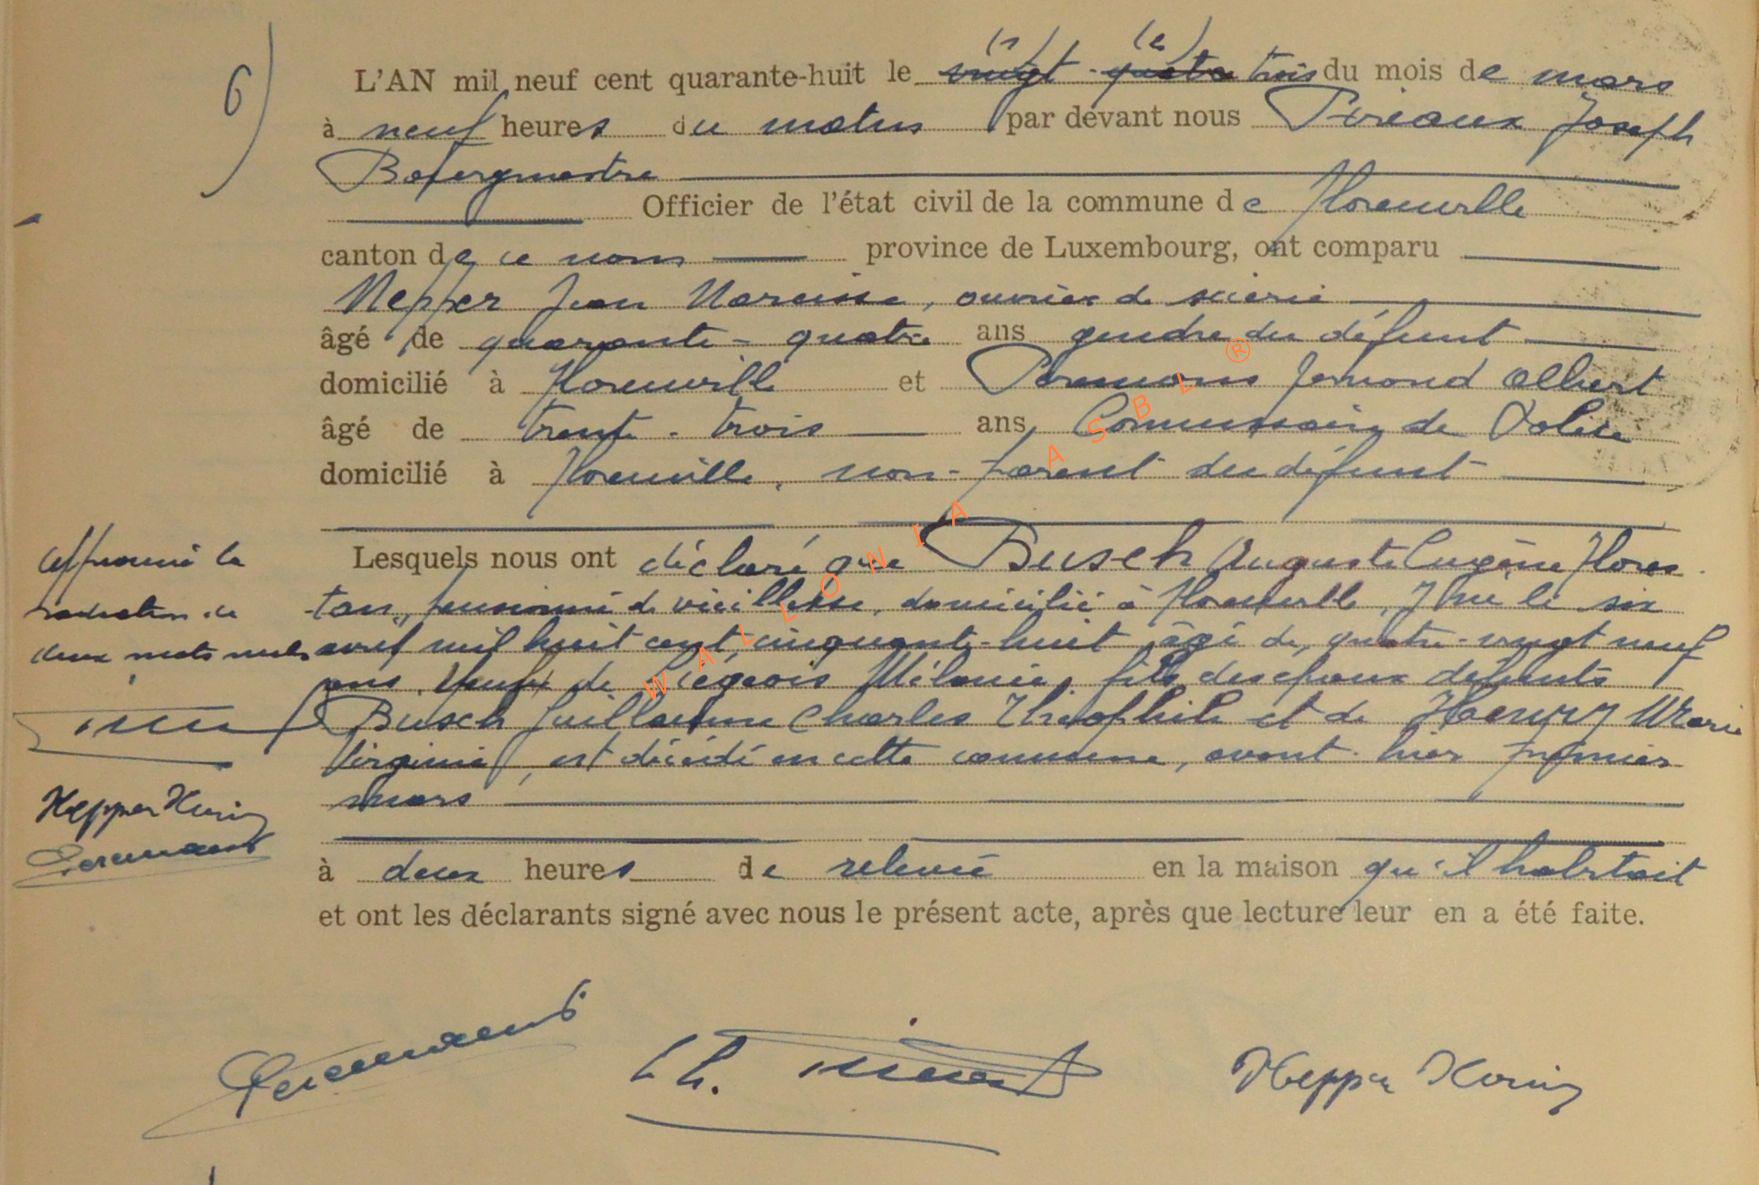 6)
(1) (2)
L'AN mil neuf cent quarante-huit le vingt-quatre trois du mois de mars
à neuf heures du matin par devant nous Piriaux Joseph
Bourgmestre
Officier de l'état civil de la commune de Florenville
canton de ce nom province de Luxembourg, ont comparu
Hepper Jean Narcisse, ouvrier de scierie
âgé de quarante-quatre ans gendre du défunt
domicilié à Florenville et Fernand Albert
âgé de trente-trois ans, Commissaire de Police
domicilié à Florenville, non-parent du défunt
Lesquels nous ont déclaré que Busch Auguste Eugène Floren
tan, pensionné de vieillesse, domicilié à Florenville, y né le six
avril mil huit cent cinquante-huit âgé de quatre-vingt neuf
ans, Veuf de Liégeois Mélanie, fils des époux défunts
Busch Guillaume Charles Théophile et de Henry Marie
Virginie, est décédé en cette commune, avant-hier premier
mars
à deux heures de relevée en la maison qu'il habitait
et ont les déclarants signé avec nous le présent acte, après que lecture leur en a été faite.
Approuvé la
radiation de
deux mots nuls
Hepper
Hepper
WALLONIA ASBL ®